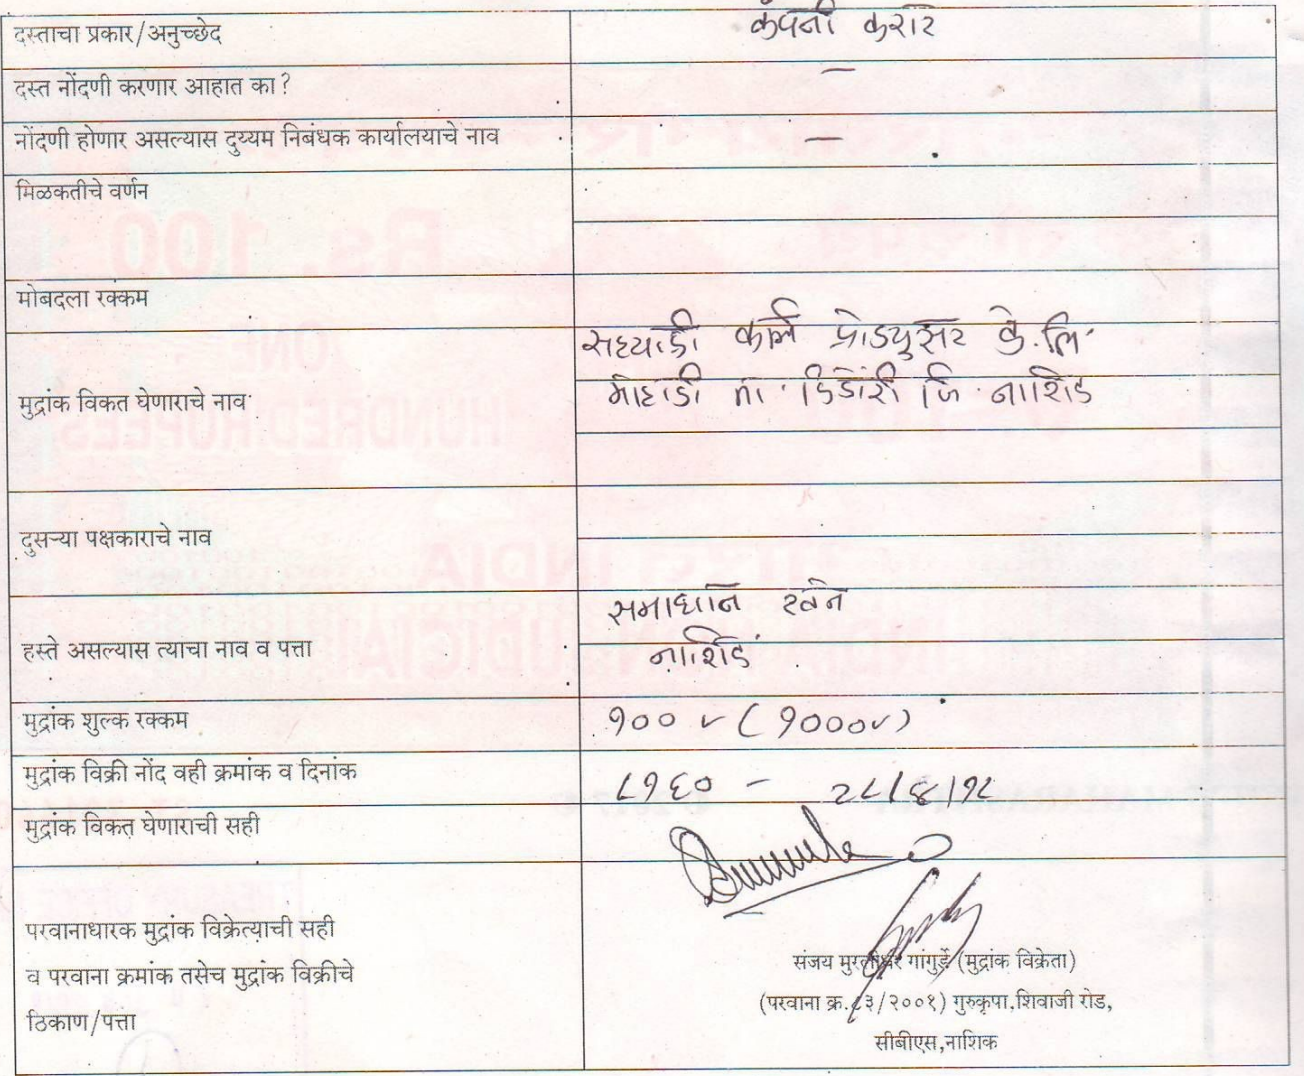 दस्ताचा प्रकार/अनुच्छेद कंपनी करार
दस्त नोंदणी करणार आहात का? —
नोंदणी होणार असल्यास दुय्यम निबंधक कार्यालयाचे नाव —
मिळकतीचे वर्णन
मोबदला रक्कम
मुद्रांक विकत घेणाराचे नाव
सह्याद्री फार्म प्रोड्युसर कं. लि.
मोहाडी ता. दिंडोरी जि. नाशिक
दुसऱ्या पक्षकाराचे नाव
हस्ते असल्यास त्याचा नाव व पत्ता
समाधान
नाशिक
मुद्रांक शुल्क रक्कम १०० (१०००)
मुद्रांक विक्री नोंद वही क्रमांक व दिनांक ८१६० — २८/४/१८
मुद्रांक विकत घेणाराची सही
परवानाधारक मुद्रांक विक्रेत्याची सही
व परवाना क्रमांक तसेच मुद्रांक विक्रीचे
ठिकाण/पत्ता
संजय मुरलीधर गांगुर्डे (मुद्रांक विक्रेता)
(परवाना क्र.८३/२००१) गुरुकृपा,शिवाजी रोड,
सीबीएस,नाशिक
Rs. 100
ONE
HUNDRED RUPEES
भारत INDIA
INDIA NON JUDICIAL
MAHARASHTRA